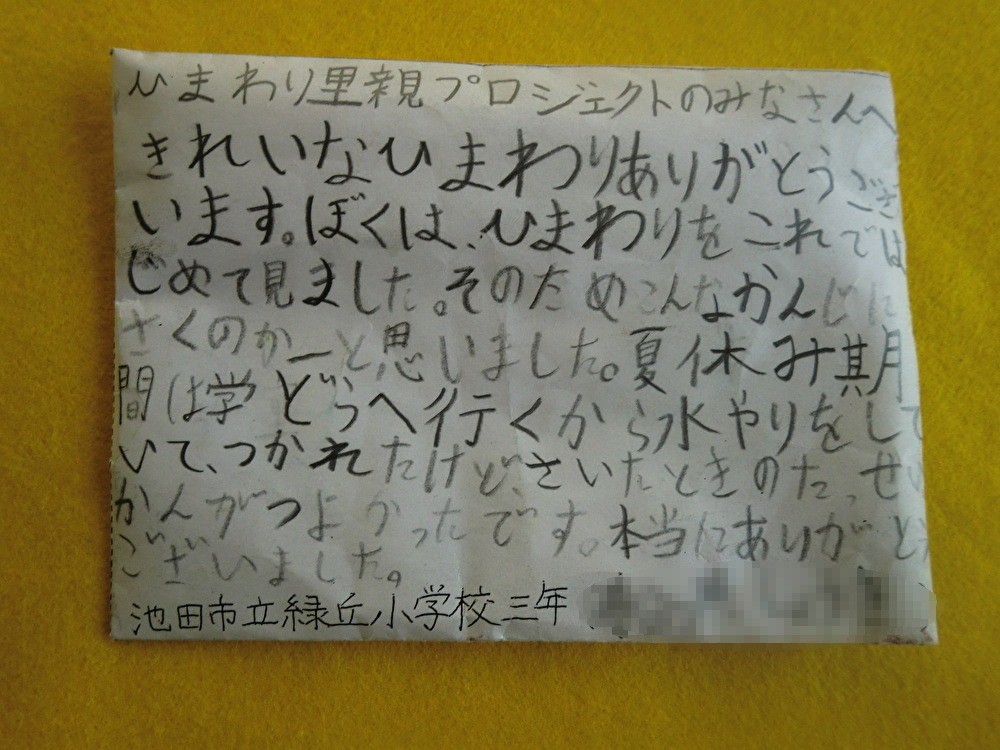 ひまわり里親プロジェクトのみなさんへ
きれいなひまわりありがとうござ
います。ぼくは、ひまわりをこれでは
じめて見ました。そのためこんなかんじに
さくのかーと思いました。夏休み其月
間は学どうへ行くから水やりをして
いて、つかれたけど、さいたときのたっせい
かんがつよかったです。本当にありがとう
ございました。
池田市立緑丘小学校三年